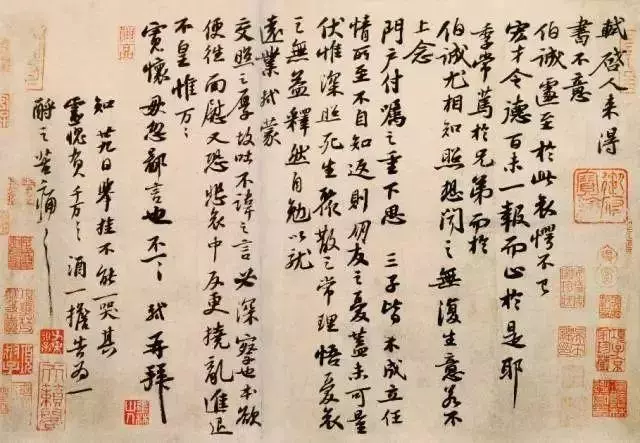 軾啓人來得
書不意
伯誠遽至於此哀愕不已
宏才令德百未一報而止於是耶
季常篤於兄弟而於
伯誠尤相知照想聞之無復生意若不
上念
門戶付囑之重下思三子皆不成立任
情所至不自知返則朋友之憂蓋未可量
伏惟深照死生聚散之常理悟憂哀
之無益釋然自勉以就
遠業軾蒙
交照之厚故吐不諱之言必深察也本欲
便往面慰又恐悲哀中反更撓亂進退
不皇惟万〻
寬懷毋忽鄙言也不一〻軾再拜
知廿九日舉挂不能一哭其
靈愧負千万〻酒一擔告為一
酹之苦痛〻